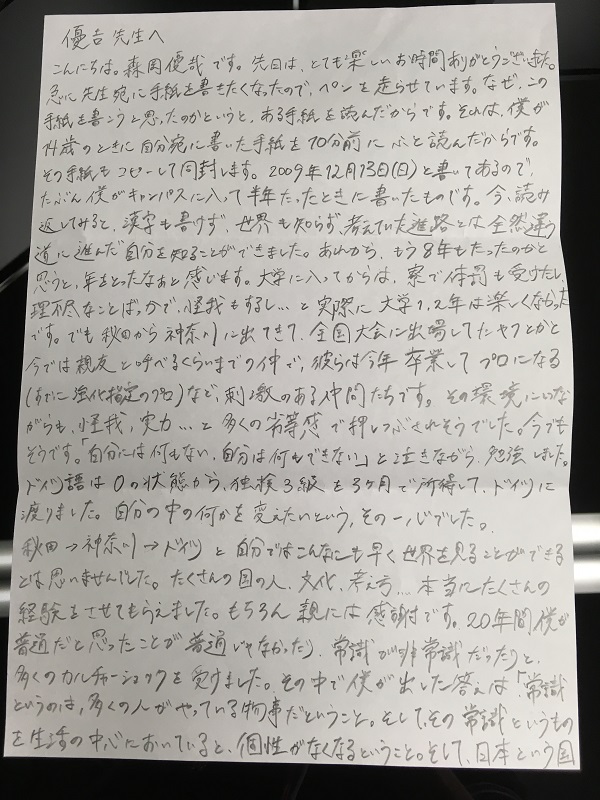 優吉先生へ
こんにちは。森岡優哉です。先日は、とても楽しいお時間ありがとうございました。
急に先生宛に手紙を書きたくなったので、ペンを走らせています。なぜ、この
手紙を書こうと思ったのかというと、ある手紙を読んだからです。それは、僕が
14歳のときに自分宛に書いた手紙を10分前にふと読んだからです。
その手紙もコピーして同封します。2009年12月13日(日)と書いてあるので、
たぶん僕がキャンパスに入って半年たったときに書いたものです。今、読み
返してみると、漢字も書けず、世界も知らず、考えていた進路とは全然違う
道に進んだ自分を知ることができました。あれから、もう8年もたったのかと
思うと、年をとったなぁと感じます。大学に入ってからは、寮で体罰も受けたし、
理不尽なことばっかで、怪我もするし…と実際に大学1、2年は楽しくなかった
です。でも秋田から神奈川に出てきて、全国大会に出場してたヤツとかと
今では親友と呼べるくらいまでの仲で、彼らは今年卒業してプロになる
(すでに強化指定のプロ)など、刺激のある仲間たちです。その環境にいな
がらも、怪我、実力…と多くの劣等感で押しつぶされそうでした。今でも
そうです。「自分には何もない、自分は何もできない」と泣きながら、勉強しました。
ドイツ語は0の状態から、独検3級を3ヶ月で所得して、ドイツに
渡りました。自分の中の何かを変えたいという、その一心でした。
秋田→神奈川→ドイツと自分ではこんなにも早く世界を見ることができる
とは思いませんでした。たくさんの国の人、文化、考え方…本当にたくさんの
経験をさせてもらえました。もちろん親には感謝です。20年間僕が
普通だと思ったことが普通じゃなかったり、常識が非常識だったりと、
多くのカルチャーショックを受けました。その中で僕が出した答えは「常識
というのは、多くの人がやっている物事だということ。そして、その常識というもの
を生活の中心においていると、個性がなくなるということ。そして、日本という国